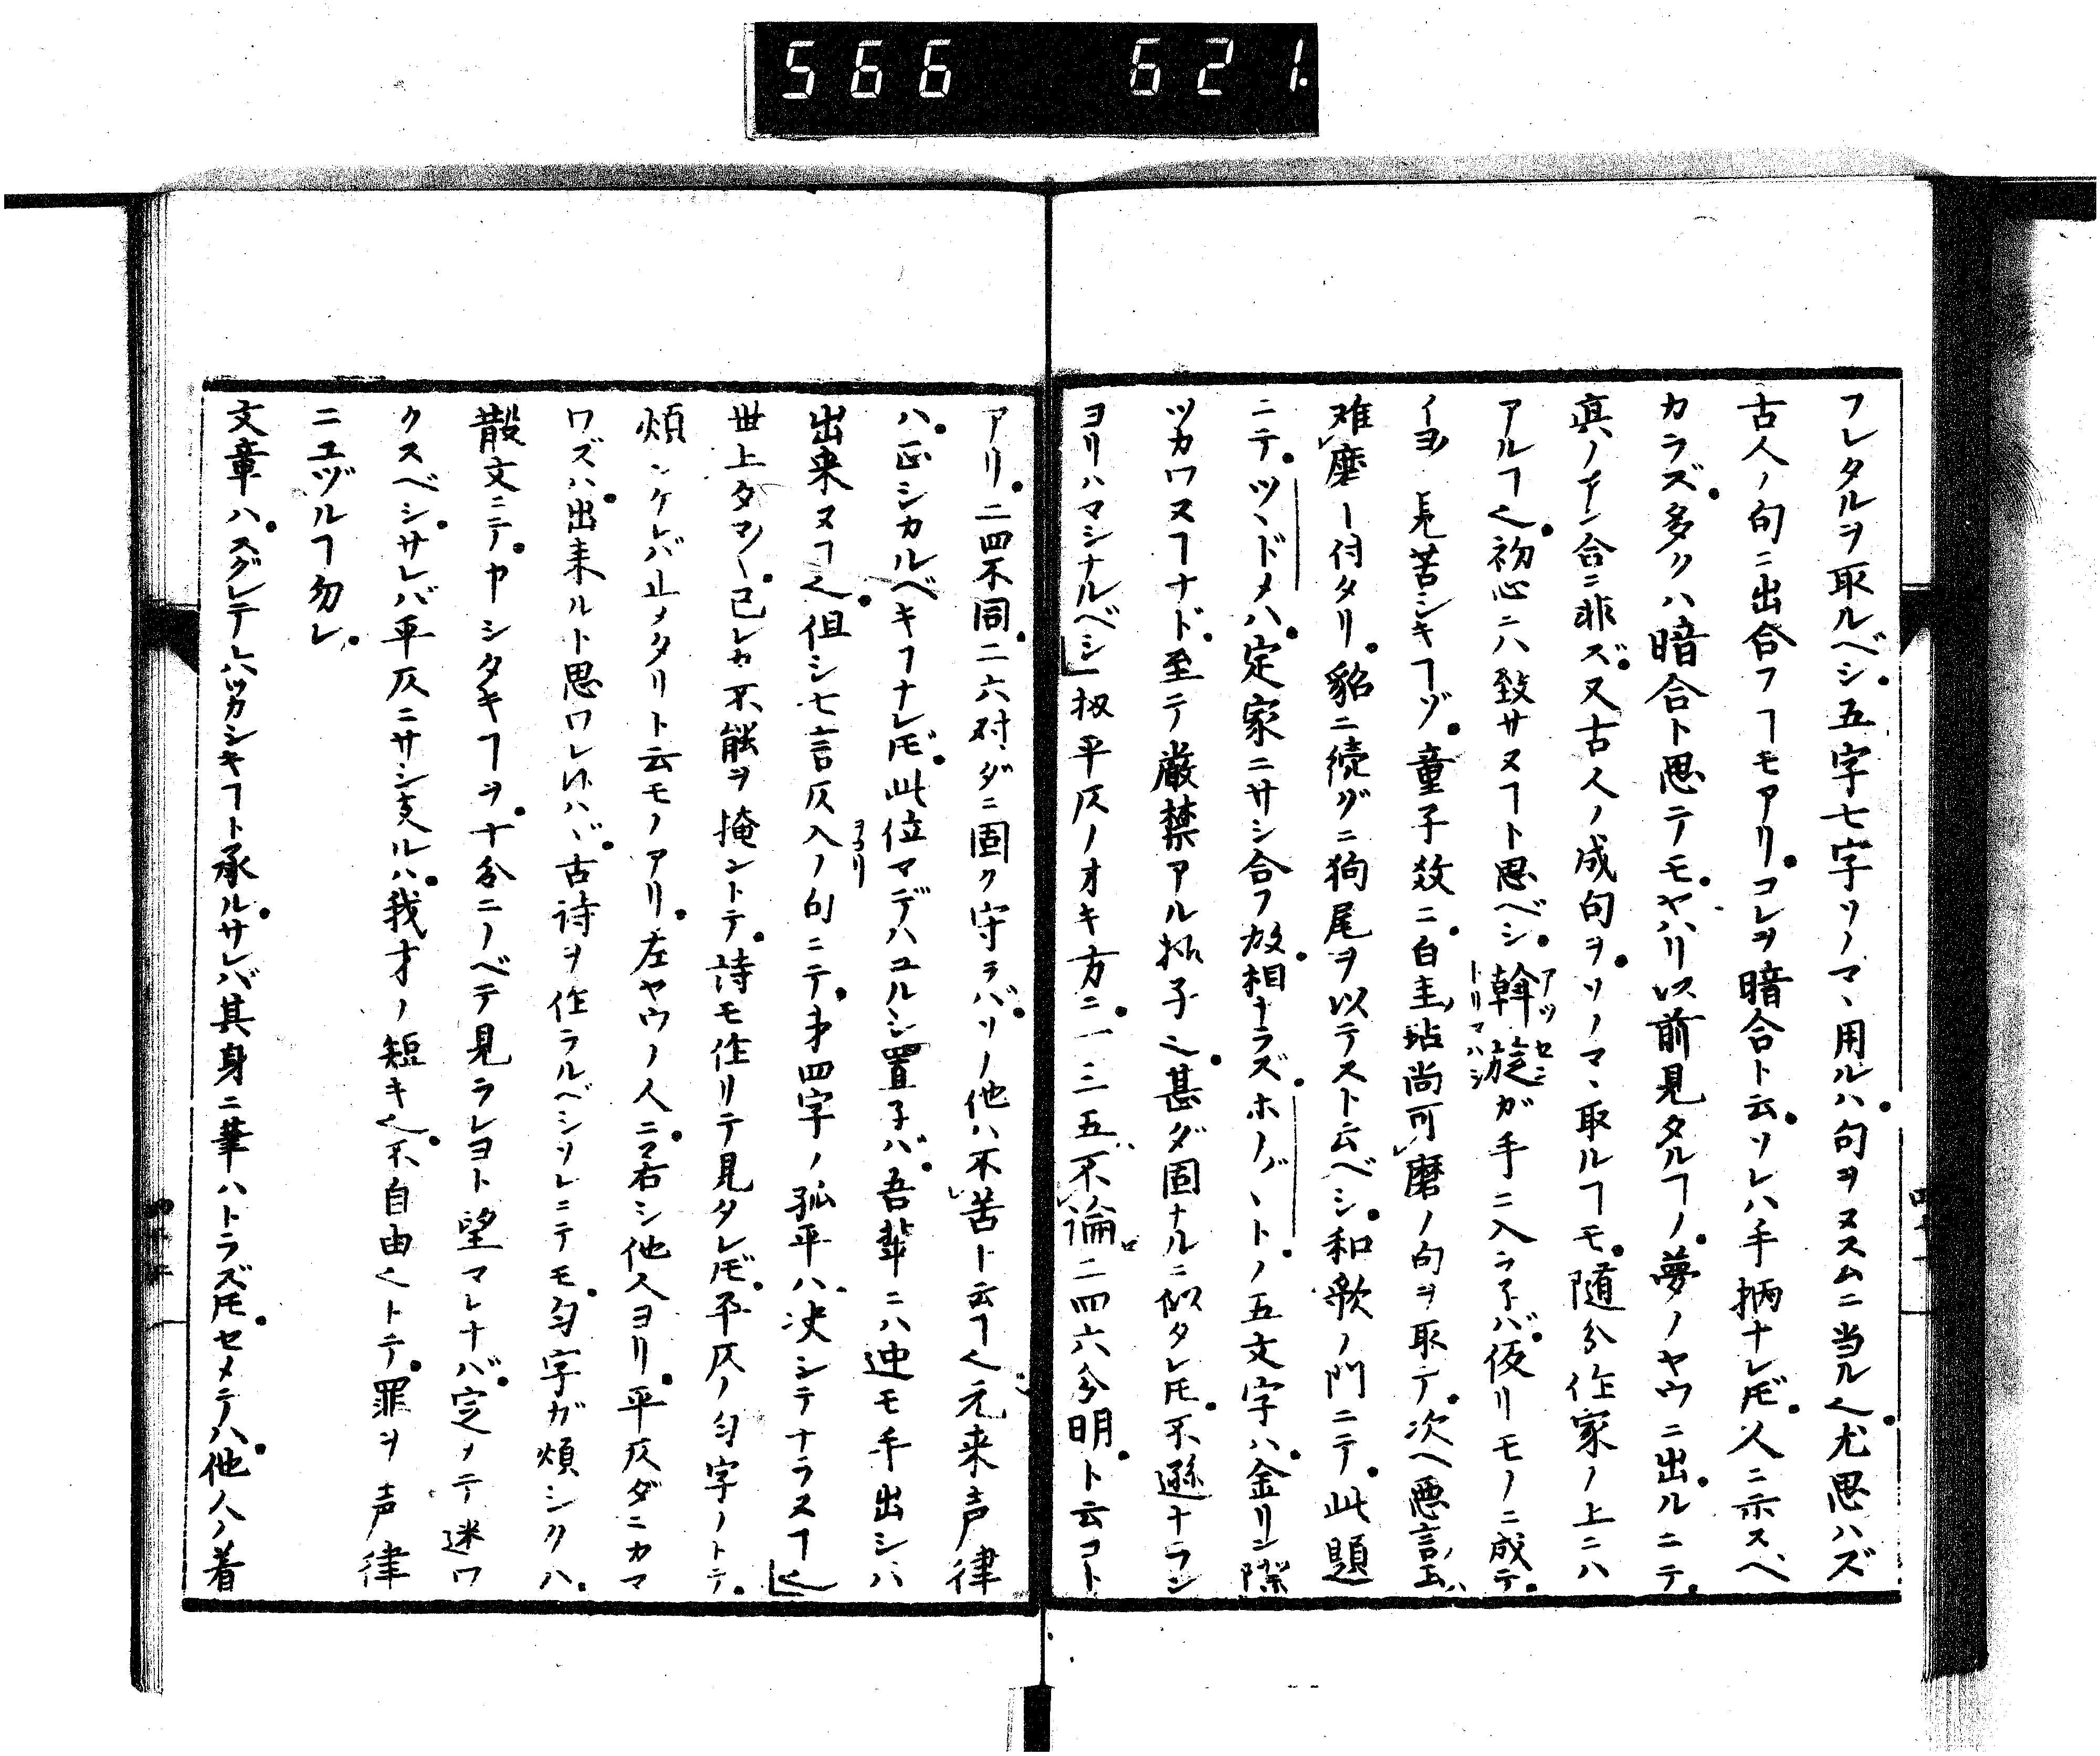 566 621.
フレタルヲ取ルベシ。五字七字ソノマヽ用ルハ。句ヲヌスムニ当ル也。尤思ハズ
古人ノ句ニ出合フヿモアリ。コレヲ暗合ト云。ソレハ手柄ナレ𪜈。人ニ示スベ
カラズ。多クハ暗合ト思テモ。ヤハリ以前見タルヿノ。夢ノヤウニ出ルニテ。
真ノ合ニ非ズ。又古人ノ成句ヲ。ソノマヽ取ルヿモ。随分作家ノ上ニハ
アルヿ也。初心ニハ致サヌヿト思ベシ。斡旋ガ手ニ入ラ子バ。仮リモノニ成テ。
アツセン
トリマハシ
見苦シキヿゾ。童子教ニ。白圭玷尚可磨ノ句ヲ取テ。次ヘ悪言玉ハ
難磨ト付タリ。貂ニ続グニ狗尾ヲ以テスト云ベシ。和歌ノ門ニテ。此題
ニテ。ツヽドメハ。定家ニサシ合フ故。相ナラズ。ホノ〴〵ト。ノ五文字ハ。金リン際
ツカワヌヿナド。至テ厳禁アル拍子也。甚ダ固ナルニ似タレ𪜈。不遜ナラン
ヨリハマシナルベシ」扨平仄ノオキ方ニ。一三五ハ不論。二四六分明。ト云コト
アリ。二四不同。二六対。ダニ固ク守ラバ。ソノ他ハ不苦ト云ヿ也。元来声律
ハ。正シカルベキヿナレ𪜈。此位マデハユルシ置子バ。吾輩ニハ迚モ手出シハ
出来ヌヿ也。但シ七言仄入ノ句ニテ。才四字ノ孤平ハ。決シテナラヌヿ也」
世上タマ〳〵。己レカ不能ヲ掩ントテ。詩モ作リテ見タレ𪜈。平仄ノ匀字ノトテ。
煩シケレバ止メタリト云モノアリ。左ヤウノ人ニマ右シ他人ヨリ。平仄ダニカマ
ワズハ。出来ルト思ワレ候ハヾ。古詩ヲ作ラルベシ。ソレニテモ。匀字ガ煩シクハ。
散文ニテ。ヤシタキヿヲ。十分ニノベテ見ラレヨト望マレナバ。定メテ迷ワ
クスベシ。サレバ平仄ニサシ支ルハ。我才ノ短キ也。不自由也トテ。罪ヲ声律
ニユヅルヿ勿レ。
文章ハ。スグレテムツカシキヿト承ル。サレバ其身ニ筆ハトラズ𪜈。セメテハ。他人ノ着